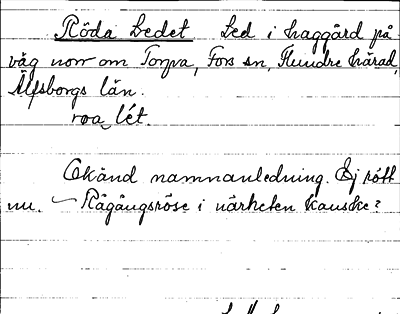 Röda Ledet Led i haggård på
väg norr om Torpa, Fors sn, Flundre härad,
Älfsborgs län.
roa lét.
Okänd namnanledning. Ej rött
nu. Rågångsröse i närheten kanske?